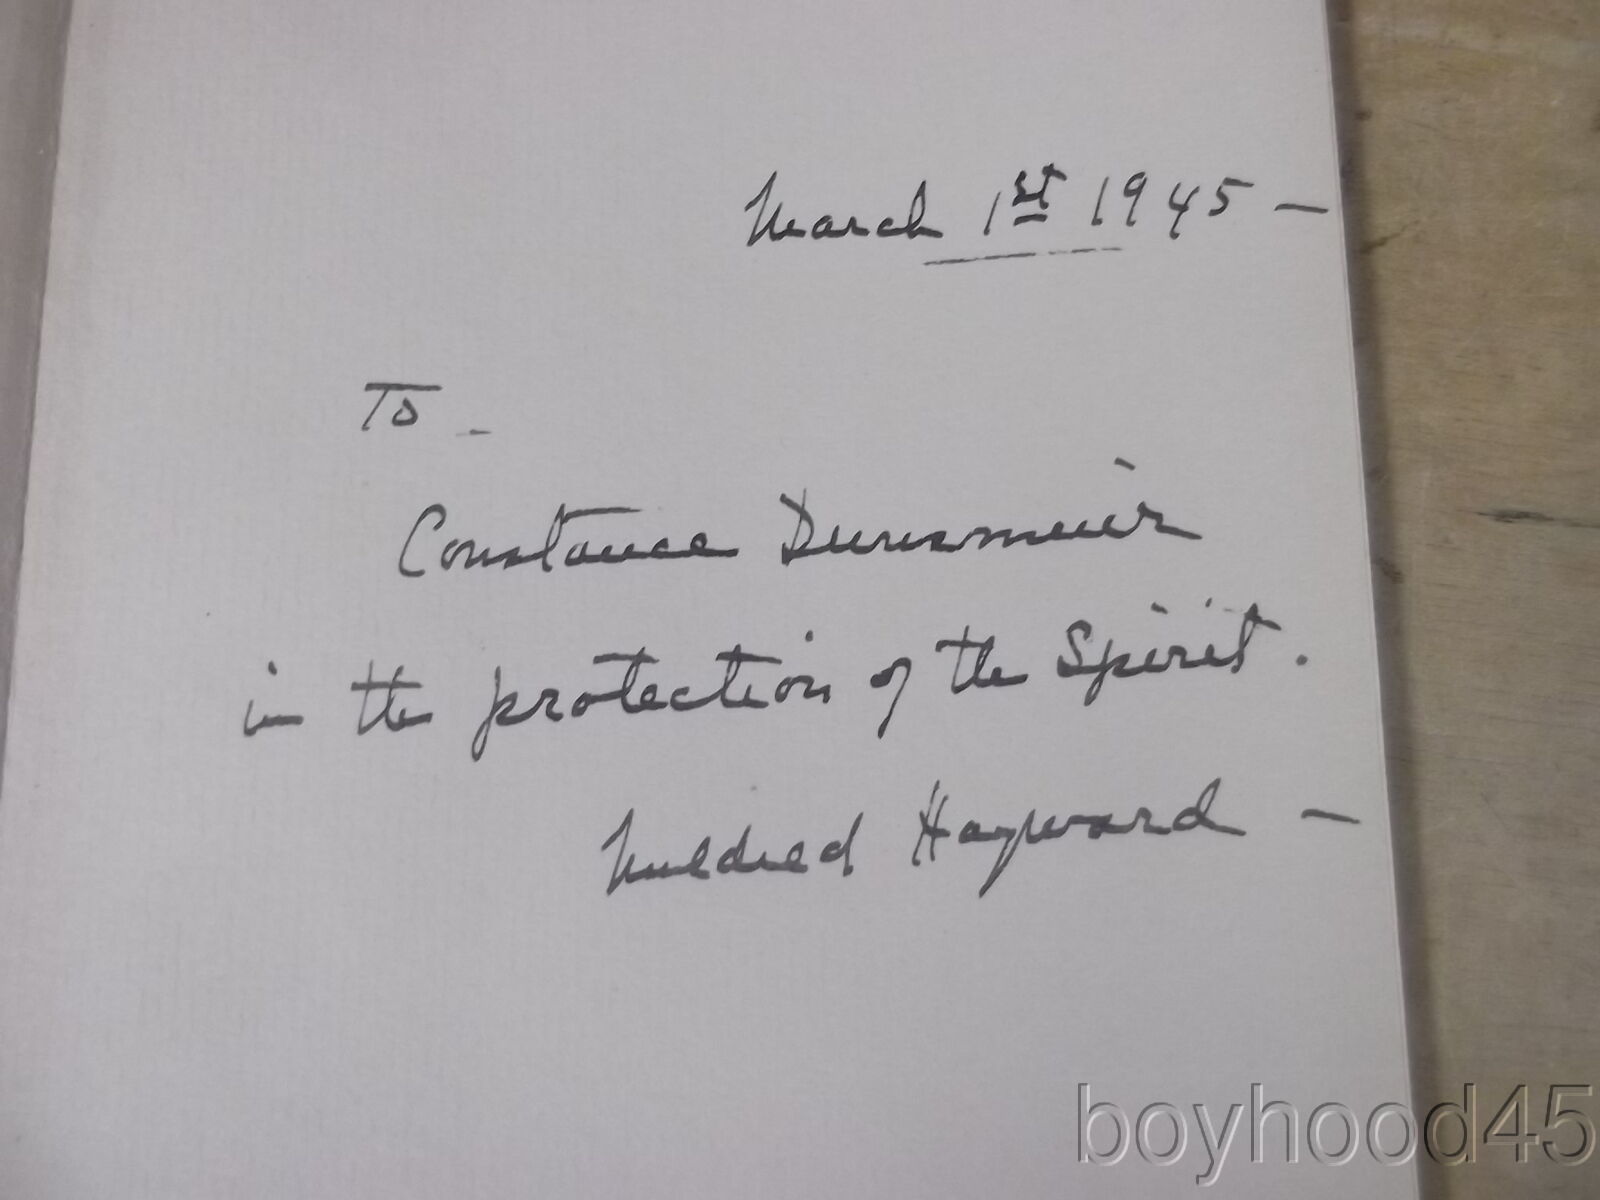 March 1st 1945 —
To -
Constance Dunsmuir
in the protection of the Spirit.
Mildred Hayward —
boyhood45